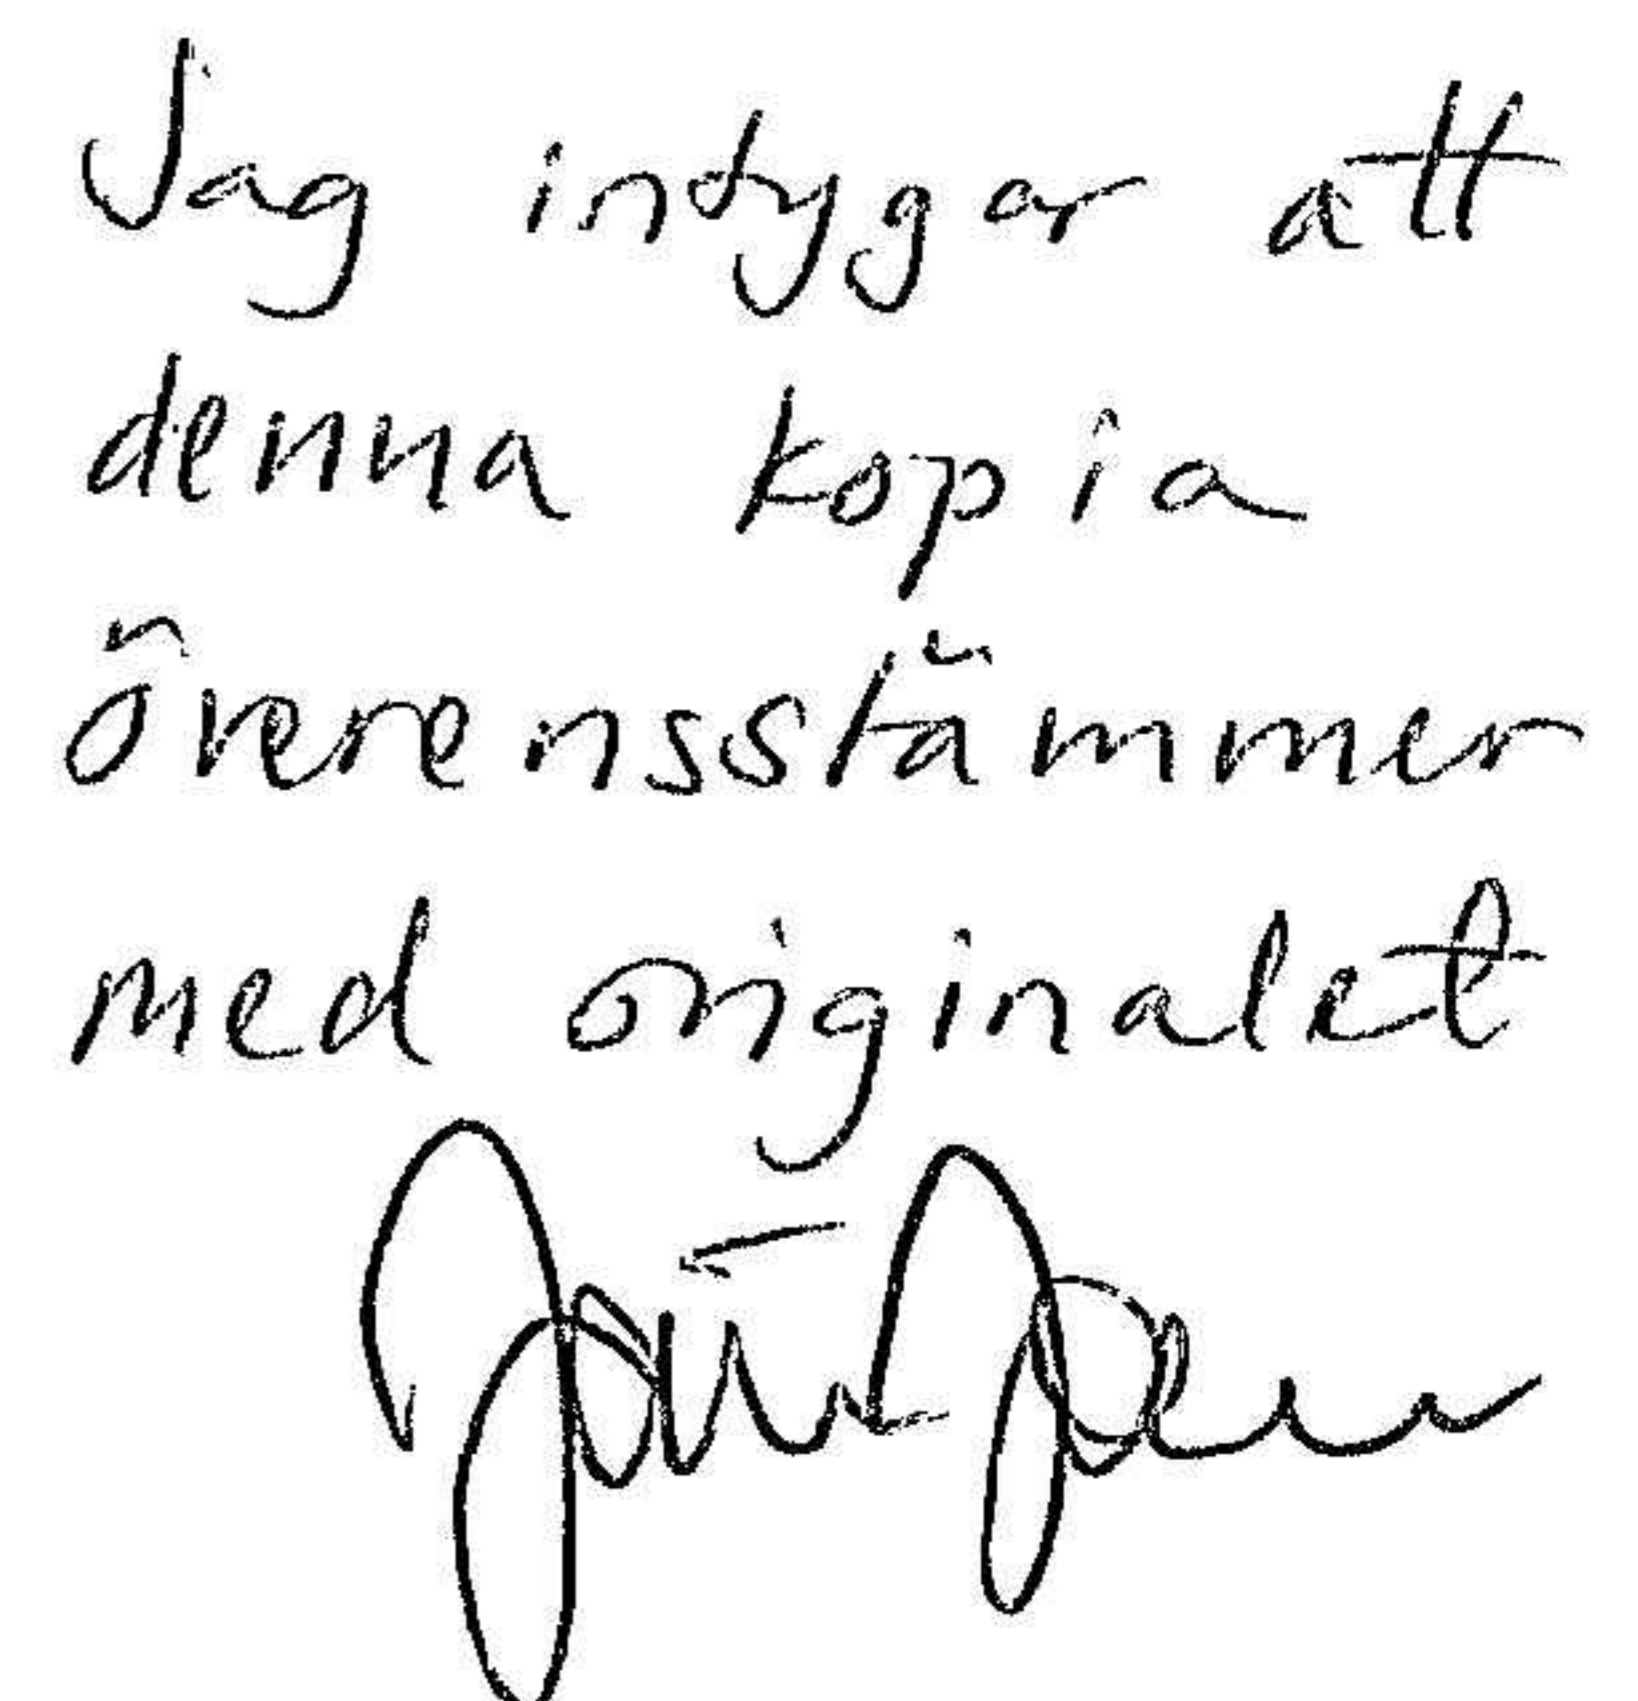 Jag intygar att
denna kopia
överensstämmer
med originalet